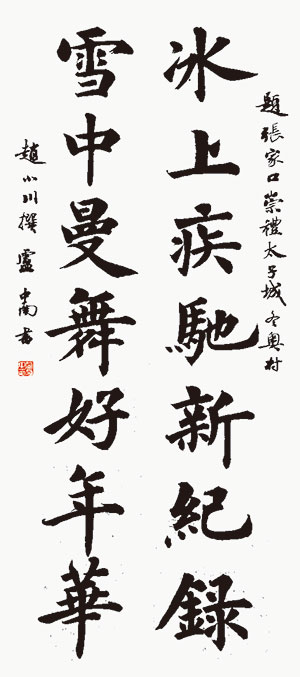 題張家口崇禮太子城冬奧村
冰上疾馳新紀錄
雪中曼舞好年華
趙小川撰 盧中南書